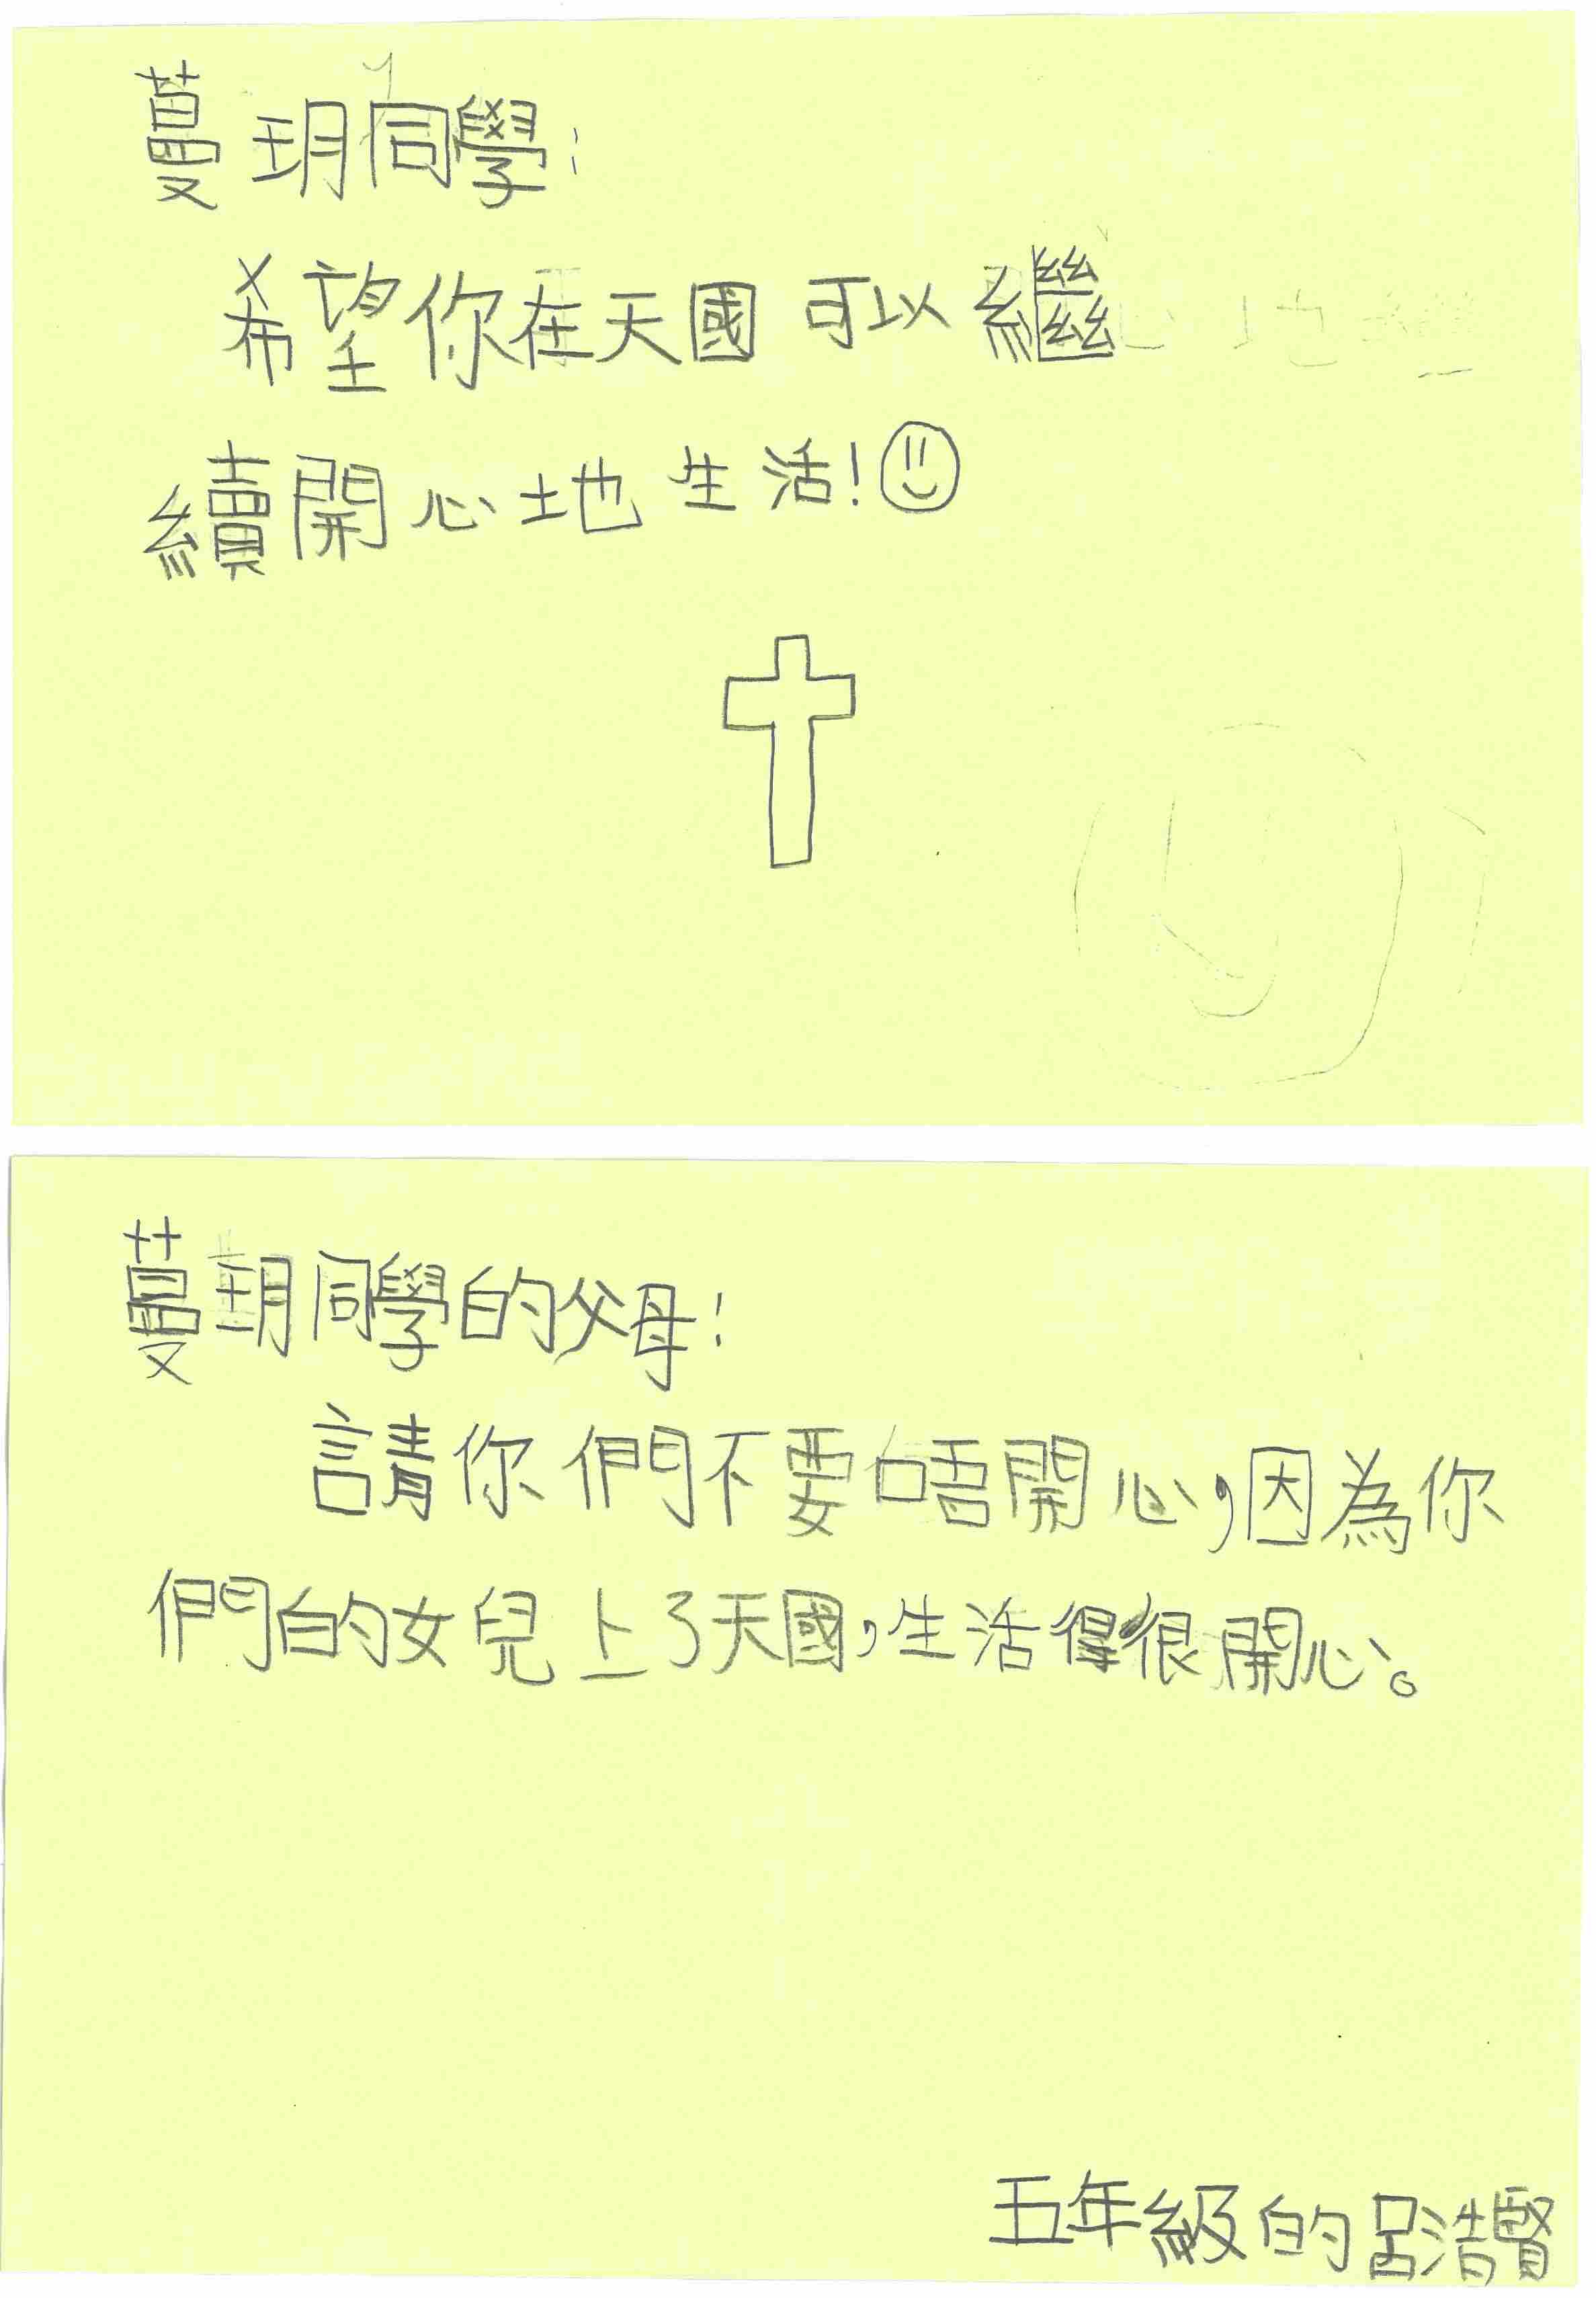 蔓玥同學:
希望你在天國可以繼
續開心地生活!
蔓玥同學的父母:
請你們不要唔開心,因為你
們的女兒上了天國,生活得很開心。
五年級的呂浩賢